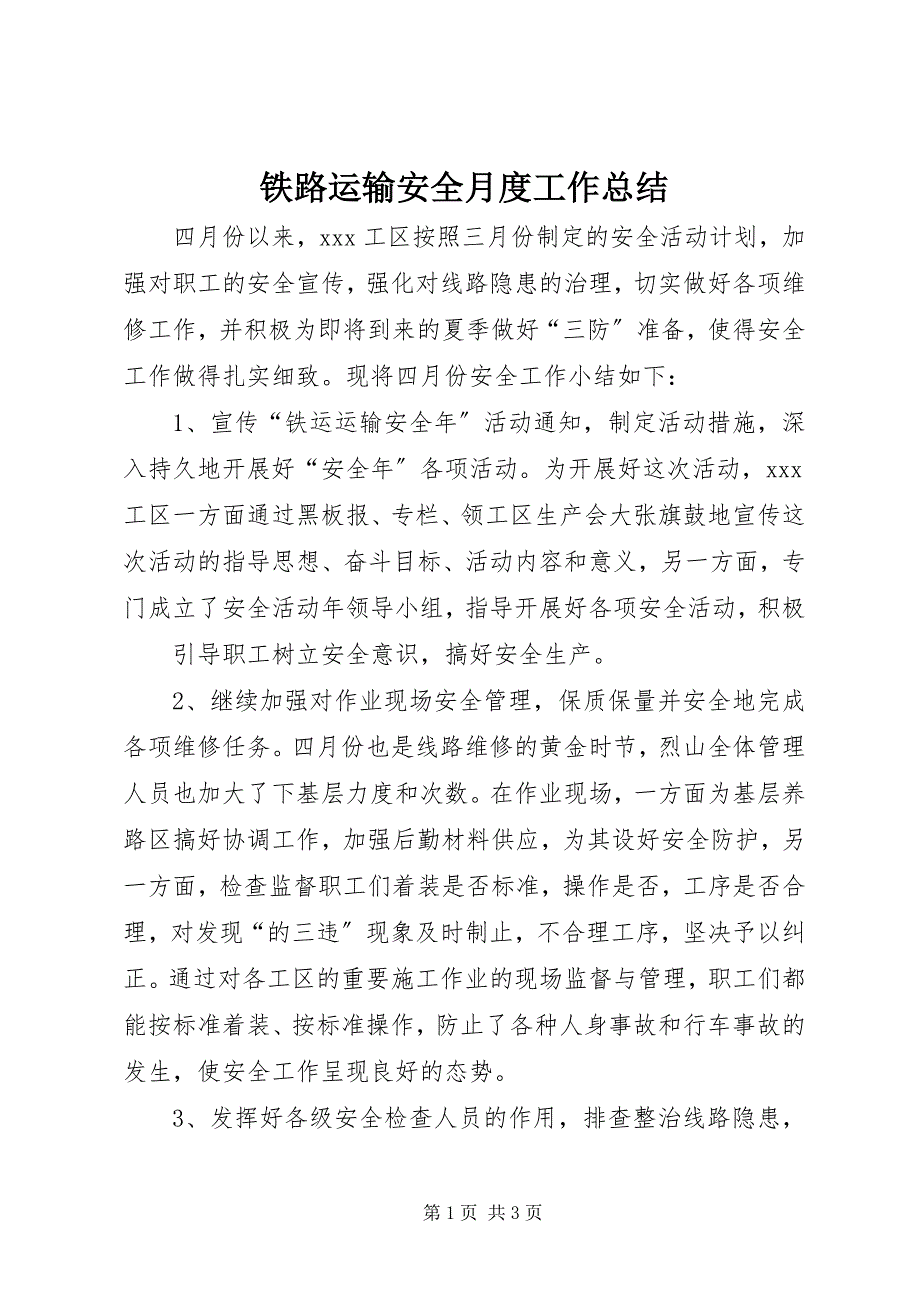 铁路运输安全月度工作总结
四月份以来，xxx 工区按照三月份制定的安全活动计划，加
强对职工的安全宣传，强化对线路隐患的治理，切实做好各项维
修工作，并积极为即将到来的夏季做好“三防〞准备，使得安全
工作做得扎实细致。现将四月份安全工作小结如下：
1、宣传“铁运运输安全年〞活动通知，制定活动措施，深
入持久地开展好“安全年〞各项活动。为开展好这次活动，xxx
工区一方面通过黑板报、专栏、领工区生产会大张旗鼓地宣传这
次活动的指导思想、奋斗目标、活动内容和意义，另一方面，专
门成立了安全活动年领导小组，指导开展好各项安全活动，积极
引导职工树立安全意识，搞好安全生产。
2、继续加强对作业现场安全管理，保质保量并安全地完成
各项维修任务。四月份也是线路维修的黄金时节，烈山全体管理
人员也加大了下基层力度和次数。在作业现场，一方面为基层养
路区搞好协调工作，加强后勤材料供应，为其设好安全防护，另
一方面，检查监督职工们着装是否标准，操作是否，工序是否合
理，对发现“的三违〞现象及时制止，不合理工序，坚决予以纠
正。通过对各工区的重要施工作业的现场监督与管理，职工们都
能按标准着装、按标准操作，防止了各种人身事故和行车事故的
发生，使安全工作呈现良好的态势。
3、发挥好各级安全检查人员的作用，排查整治线路隐患，
第 1 页 共 3 页